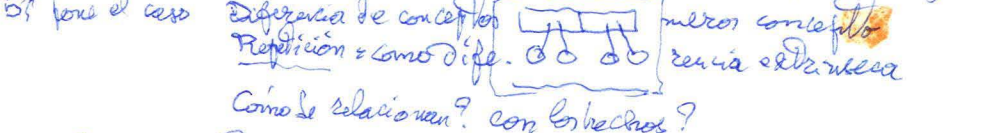 Si pone el caso Diferencia de conceptos meros concepto
Repetición = como dife. rencia extrínseca
Cómo se relacionan? con los hechos?